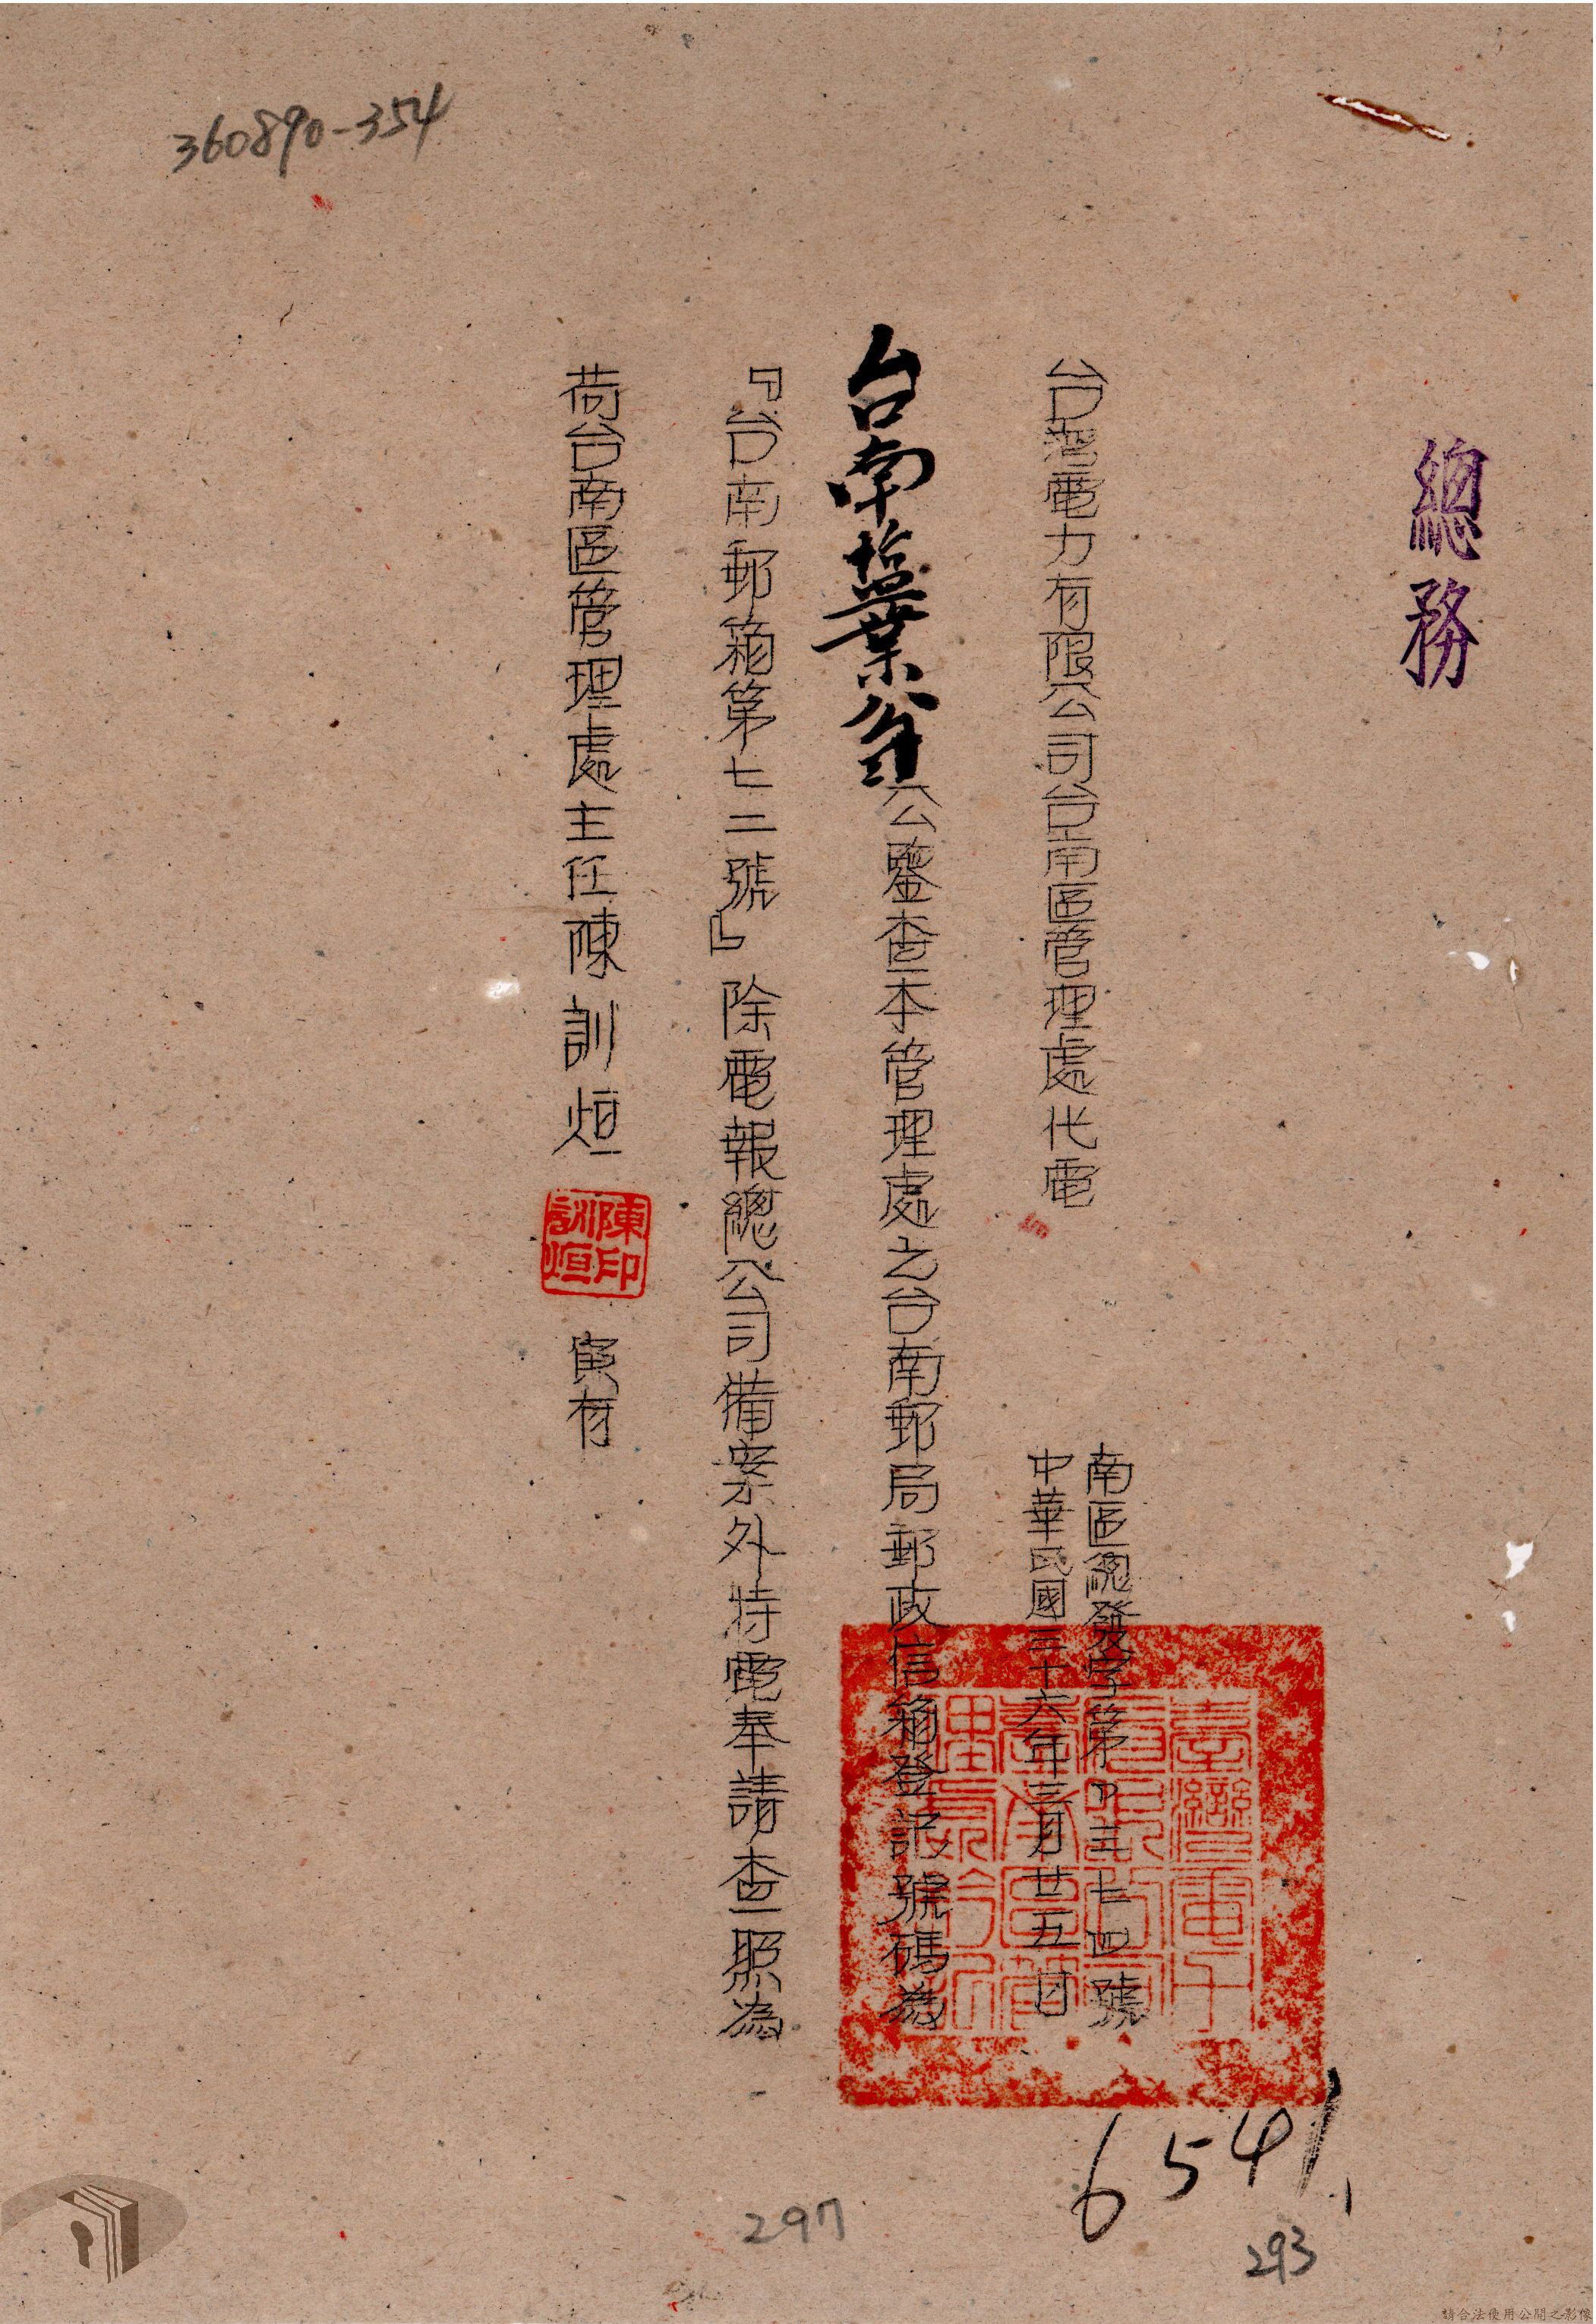 360890-354
總務
台灣電力有限公司台南區管理處代電
南區總發字第 三七四號
中華民國三十六年三月廿五日
台南塩業公司公鑒查本管理處之台南郵局郵政信箱登記號碼為
『台南郵箱第七二號』除電報總公司備案外特電奉請查照為
荷台南區管理處主任陳訓烜 寅有
陳印訓烜
6541
297
293
請合法使用公開之影像